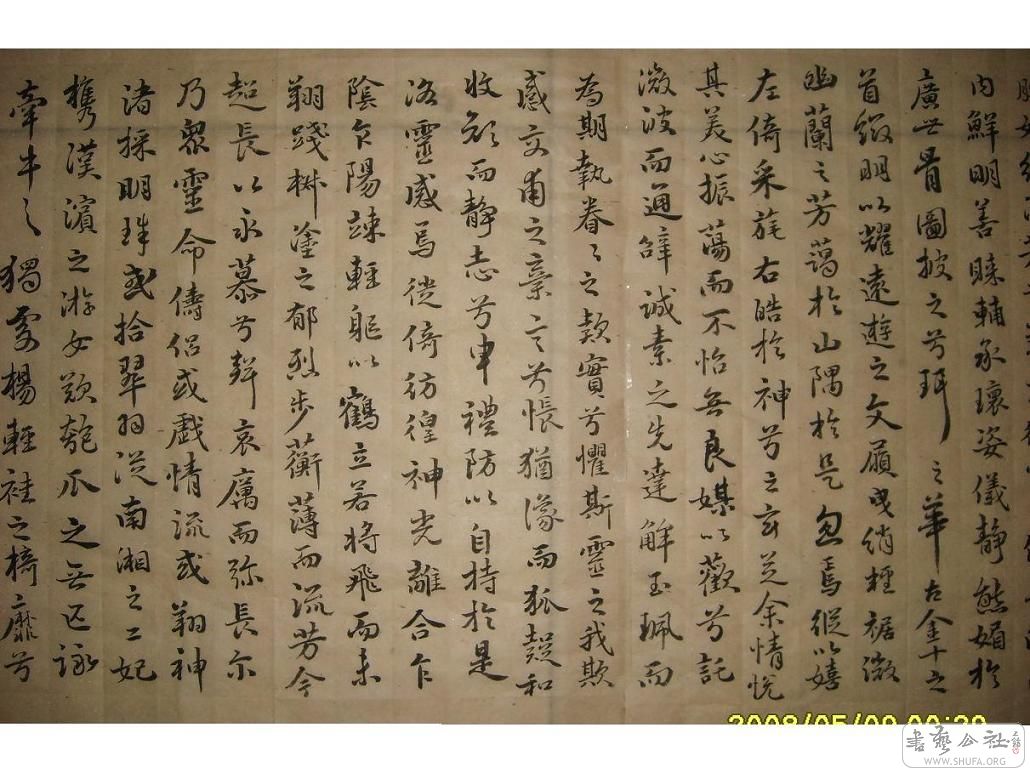 内鮮明善睞輔承瓌姿儀靜態媚於
廣世骨圖披之兮珥之華右金十之
首綴明以耀遠遊之文履曳綃輕裾微
幽蘭之芳藹於山隅於是忽焉縱以嬉
左倚采旄右皓於神兮之玄芝余情悅
其美心振蕩而不怡無良媒以歡兮託
微波而通辭誠素之先達解玉珮而
為期執眷々之款實兮懼斯靈之我欺
感交甫之棄言兮悵猶豫而狐疑和
收顏而靜志兮申禮防以自持於是
洛靈感焉徙倚彷徨神光離合乍
陰乍陽竦輕軀以鶴立若將飛而未
翔踐椒塗之郁烈步蘅薄而流芳今
超長以永慕兮聲哀厲而彌長尔
乃衆靈命儔侶或戲情流或翔神
渚採明珠或拾翠羽從南湘之二妃
携漢濱之游女歎匏瓜之無匹詠
牽牛之獨處楊輕袿之猗靡兮
2008/05/09 00:29
書藝公社
WWW.SHUFA.ORG